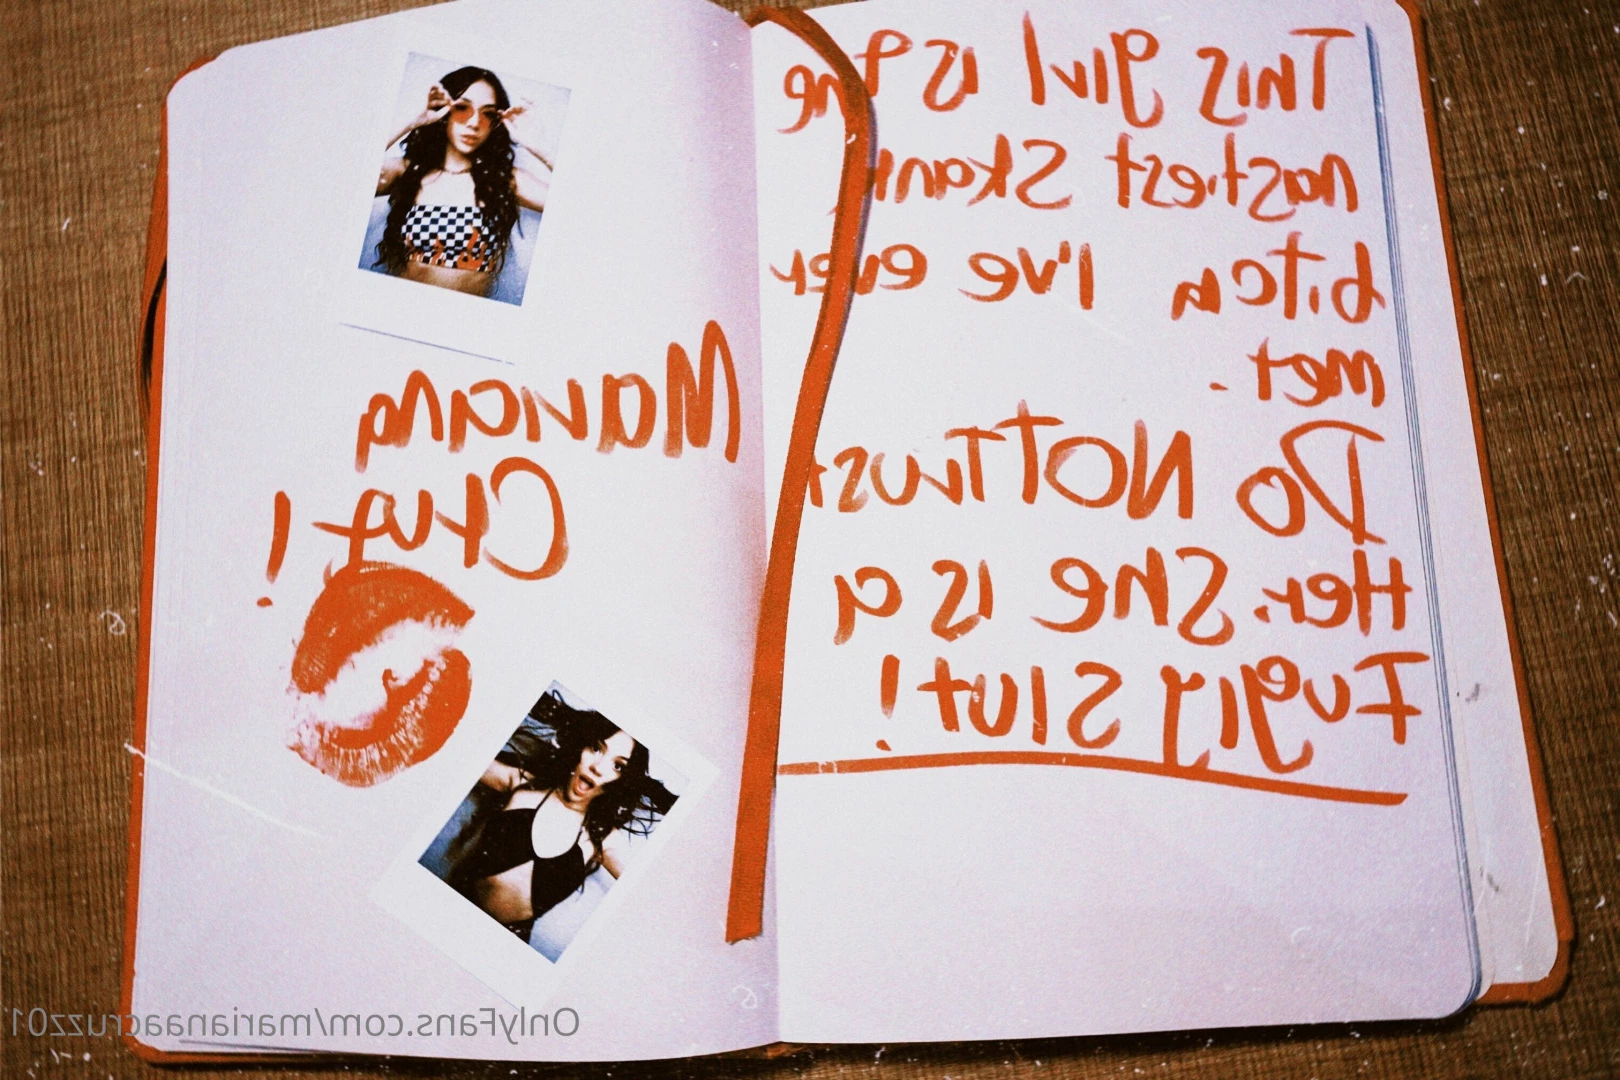 This girl is the
nastiest Skank
bitch I've ever
met.
Do NOT Trust
Her. She is a
Fugly Slut!
Mariana
Cruz!
OnlyFans.com/marianaacruzz01